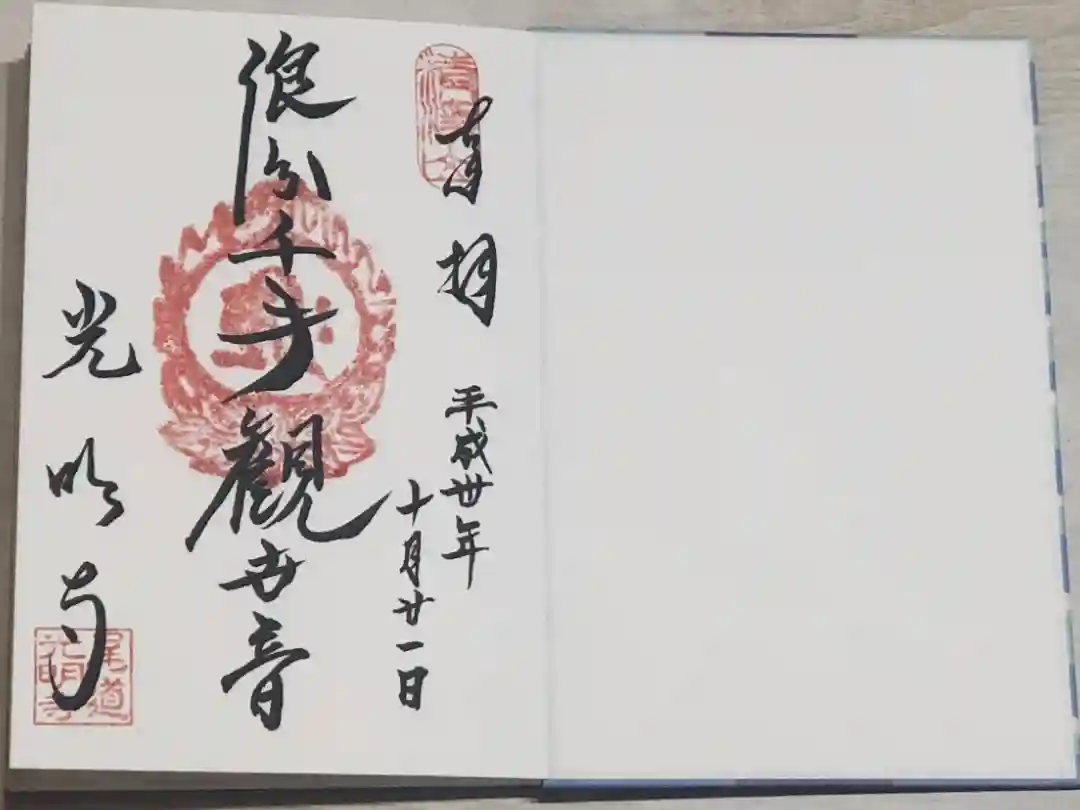 奉拝
平成卅年
十月廿一日
浪分千手觀世音
光明寺
尾道
光明寺